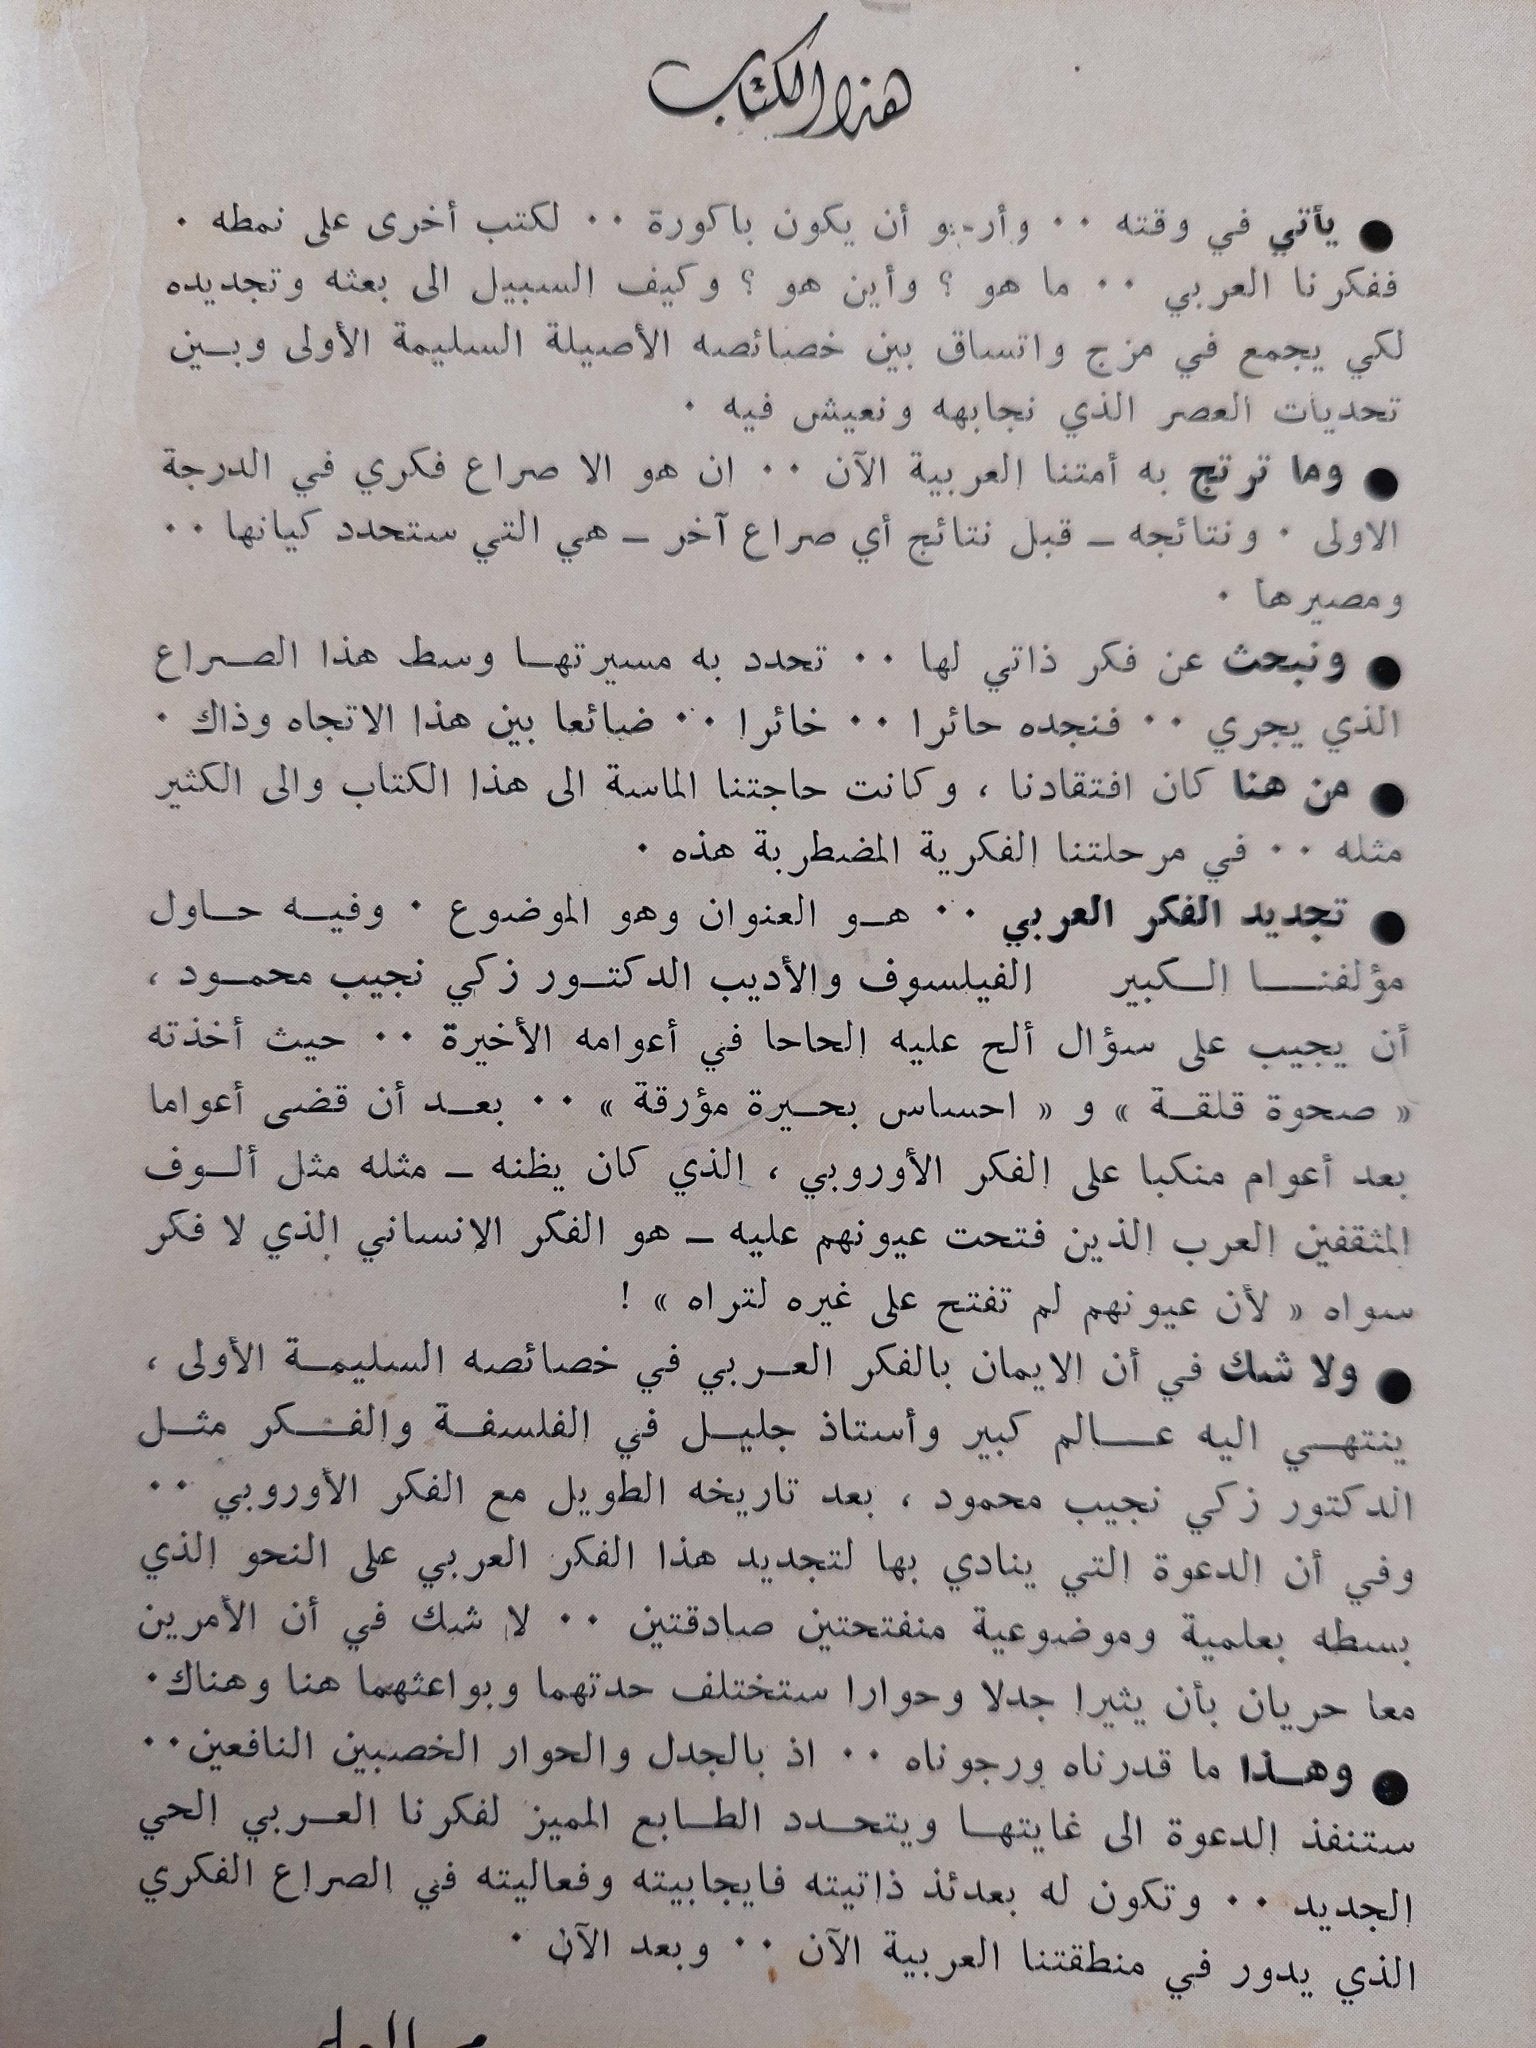 هذا الكتاب
● يأتي في وقته ٠٠ وأرجو أن يكون باكورة ٠٠ لكتب أخرى على نمطه ٠
ففكرنا العربي ٠٠ ما هو ؟ وأين هو ؟ وكيف السبيل الى بعثه وتجديده
لكي يجمع في مزج واتساق بين خصائصه الأصيلة السليمة الأولى وبين
تحديات العصر الذي نجابهه ونعيش فيه ٠
● وما ترتج به أمتنا العربية الآن ٠٠ ان هو الا صراع فكري في الدرجة
الاولى ٠ ونتائجه ـ قبل نتائج أي صراع آخر ـ هي التي ستحدد كيانها ٠٠
ومصيرها ٠
● ونبحث عن فكر ذاتي لها ٠٠ تحدد به مسيرتها وسط هذا الصراع
الذي يجري ٠٠ فنجده حائرا ٠٠ خائرا ٠٠ ضائعا بين هذا الاتجاه وذاك ٠
● من هنا كان افتقادنا ، وكانت حاجتنا الماسة الى هذا الكتاب والى الكثير
مثله ٠٠ في مرحلتنا الفكرية المضطربة هذه ٠
● تجديد الفكر العربي ٠٠ هو العنوان وهو الموضوع ٠ وفيه حاول
مؤلفنا الكبير الفيلسوف والأديب الدكتور زكي نجيب محمود ،
أن يجيب على سؤال ألح عليه الحاحا في أعوامه الأخيرة ٠٠ حيث أخذته
« صحوة قلقة » و « احساس بحيرة مؤرقة » ٠٠ بعد أن قضى أعواما
بعد أعوام منكبا على الفكر الأوروبي ، الذي كان يظنه ـ مثله مثل ألوف
المثقفين العرب الذين فتحت عيونهم عليه ـ هو الفكر الإنساني الذي لا فكر
سواه « لأن عيونهم لم تفتح على غيره لتراه » !
● ولا شك في أن الايمان بالفكر العربي في خصائصه السليمة الأولى ،
ينتهي اليه عالم كبير وأستاذ جليل في الفلسفة والفكر مثل
الدكتور زكي نجيب محمود ، بعد تاريخه الطويل مع الفكر الأوروبي ٠٠
وفي أن الدعوة التي ينادي بها لتجديد هذا الفكر العربي على النحو الذي
بسطه بعلمية وموضوعية منفتحتين صادقتين ٠٠ لا شك في أن الأمرين
معا حريان بأن يثيرا جدلا وحوارا ستختلف حدتهما وبواعثهما هنا وهناك٠
● وهذا ما قدرناه ورجوناه ٠٠ اذ بالجدل والحوار الخصبين النافعين٠٠
ستنفذ الدعوة الى غايتها ويتحدد الطابع المميز لفكرنا العربي الحي
الجديد ٠٠ وتكون له بعدئذ ذاتيته فايجابيته وفعاليته في الصراع الفكري
الذي يدور في منطقتنا العربية الآن ٠٠ وبعد الآن ٠